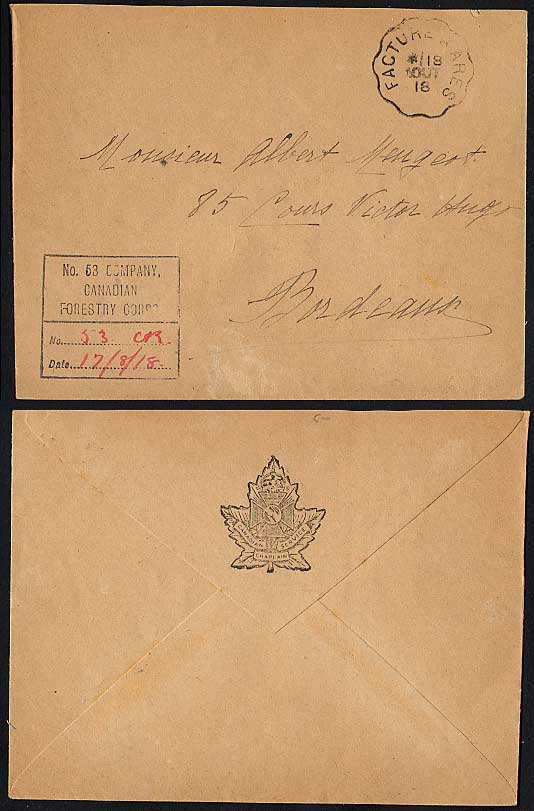 FACTURE À ARES
*/18
AOUT
18
Monsieur Albert Meugeot
85 Cours Victor Hugo
Bordeaux
No. 53 COMPANY,
CANADIAN
FORESTRY CORPS
No. 53 CR
Date 17/8/18
CANADIAN SERVICE
CHAPLAIN